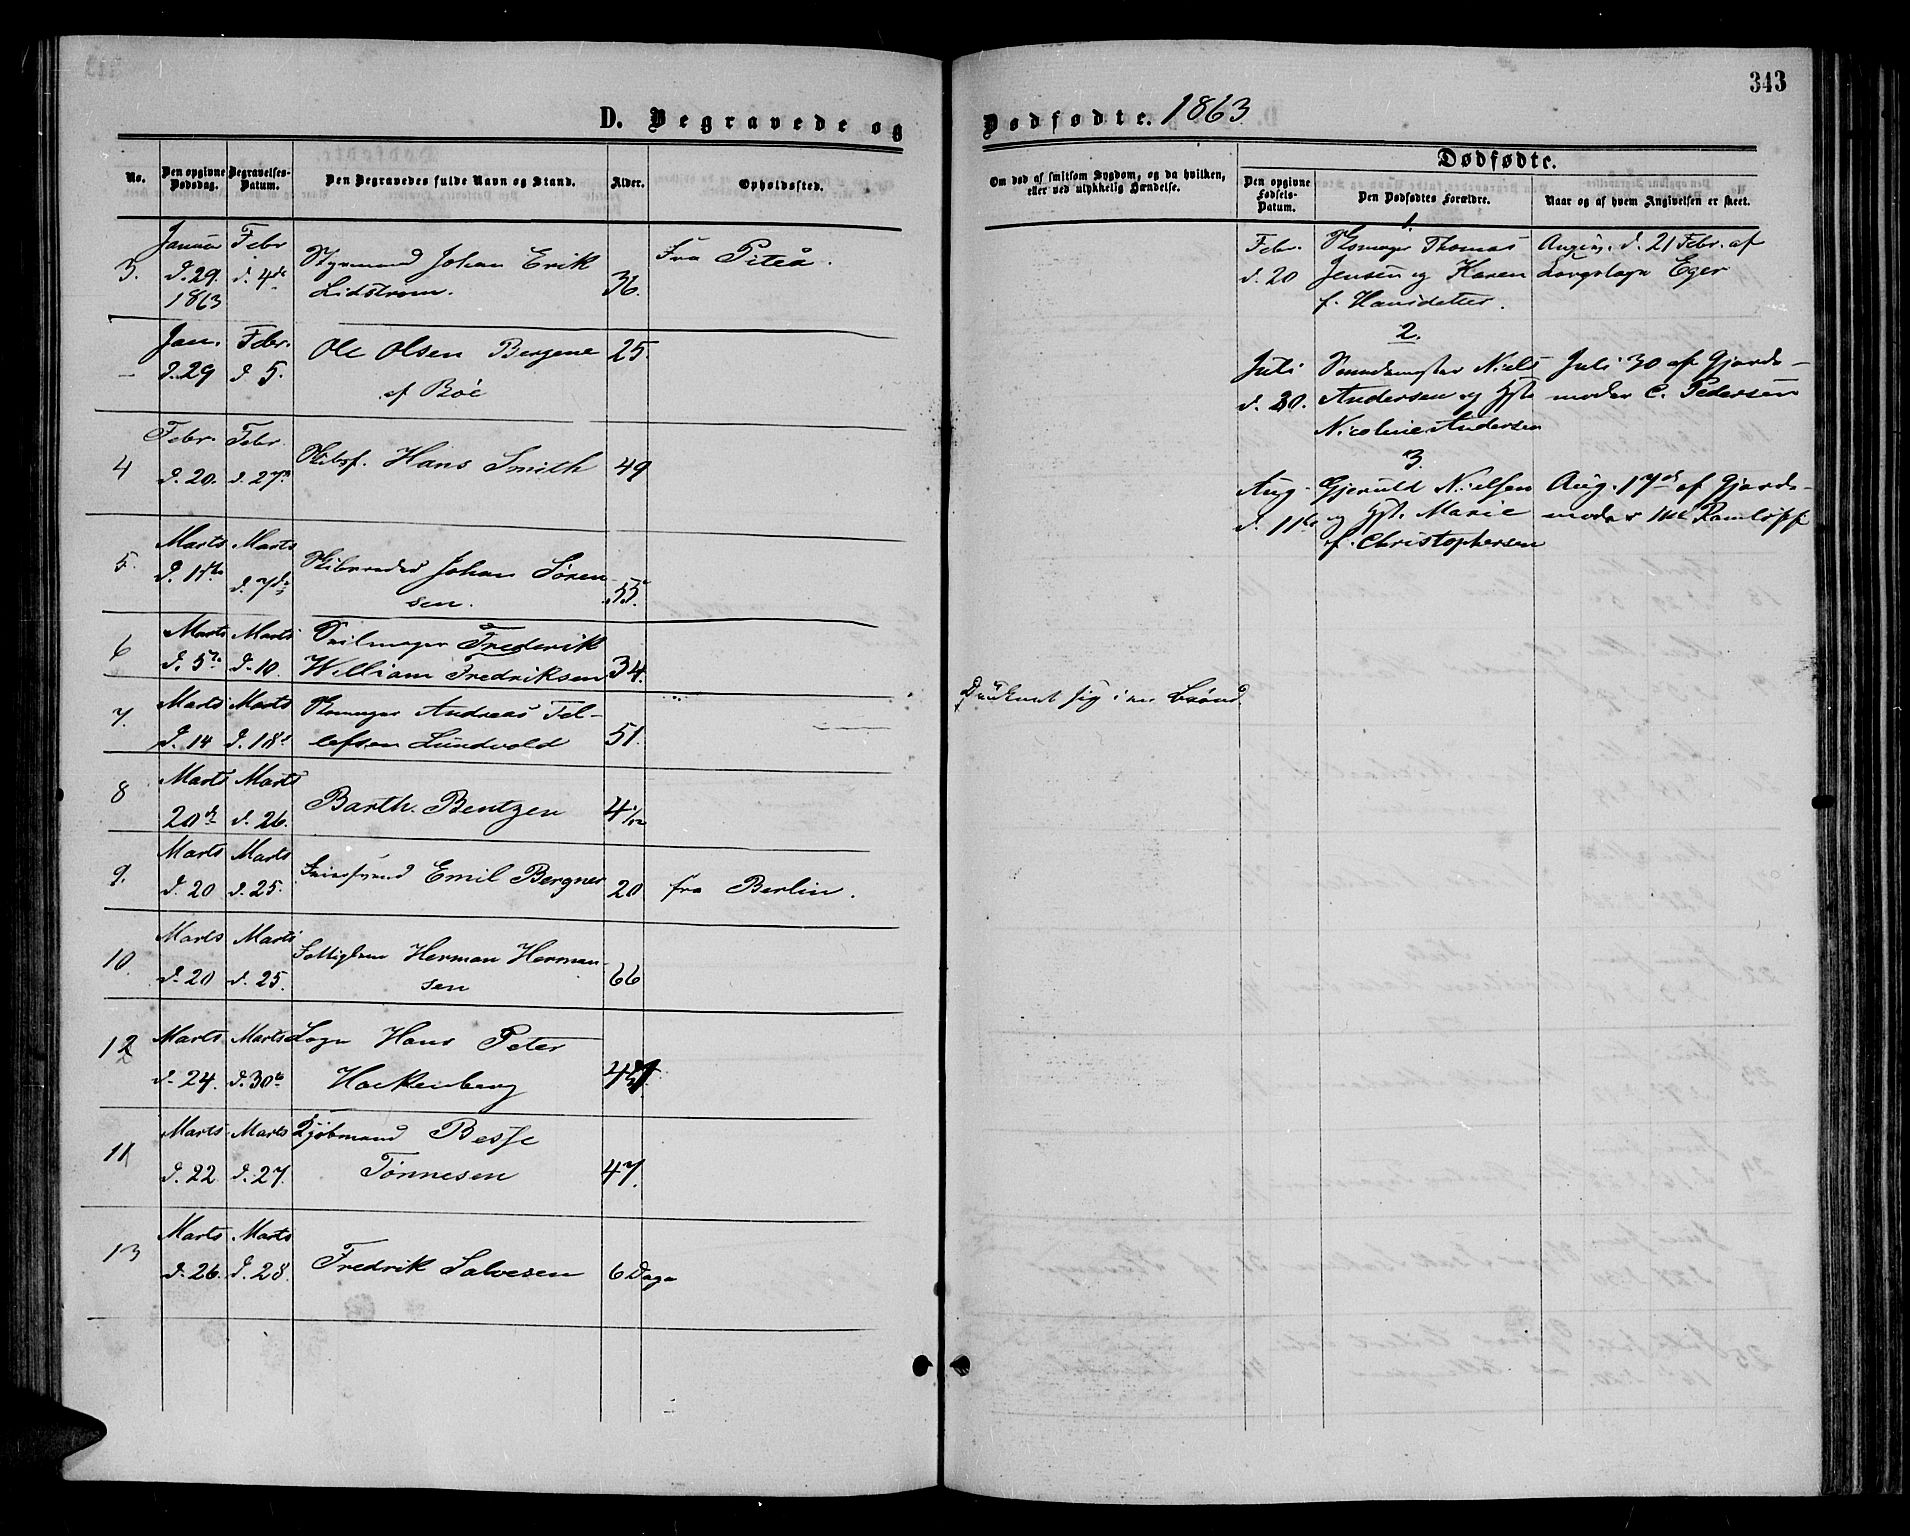 343
D. Begravede og Dødfødte. 1863
No.
Den opgivne Dødsdag.
Begravelses-Datum.
Den Begravedes fulde Navn og Stand.
Alder.
Opholdssted.
Om død af smitsom Sygdom, og da hvilken, eller ved ulykkelig Hændelse.
Dødfødte.
Den opgivne Fødsels-Datum.
Den Dødfødtes Forældre.
Naar og af hvem Angivelsen er skeet.
3. Januar d. 29. 1863 Febr d. 4de Styrmand Johan Erik
Lidstrom. 36. Fra Piteå.
– Jan. d. 29 Febr. d. 5. Ole Olsen Bergene 25.
af Boe
4 Febr. d. 20. Febr d. 27de Skibsf. Hans Smith 49
5. Marts Marts d. 7de Skibsreder Johan Søren
sen. 55.
6 Marts d. 5te Marts d. 10. Seilmager Frederik
William Fredriksen 34.
7. Marts d. 14 Marts d. 18de Skomager Andreas Tel-
lefsen Lundvold 51. Druknet sig i en Brønd
8 Marts 20de Marts d. 26. Barth. Bentzen 4 1/12
9. Marts d. 20 Marts d. 25. Emil Bergner 20 fra Berlin.
10. Marts d. 20 Marts d. 25. Fattiglem Herman Herman-
sen 66
12 Marts d. 24. Marts d. 30te Logn Hans Peter
Hackenberg
11 Marts d. 22 Marts d. 27. Kjøbmand Besse
Tønnesen 47.
13 Marts d. 26. Marts d. 28. Fredrik Salvesen 6 Dage
1.
Febr. d. 20 Skomager Thomas
Jensen og Karen
f. Hansdatter.
d. 21 Febr. af
Eger
2.
Juli d. 20. Niels
Andersen og Hst.
Nicoline Andersen
Juli 30 af Gjorde-
moder C. Pedersen
3.
Aug. d. 11te Gjeruld Nielsen
og Hst. Marie
f. Christophersen
Aug. 17de af Gjorde-
moder